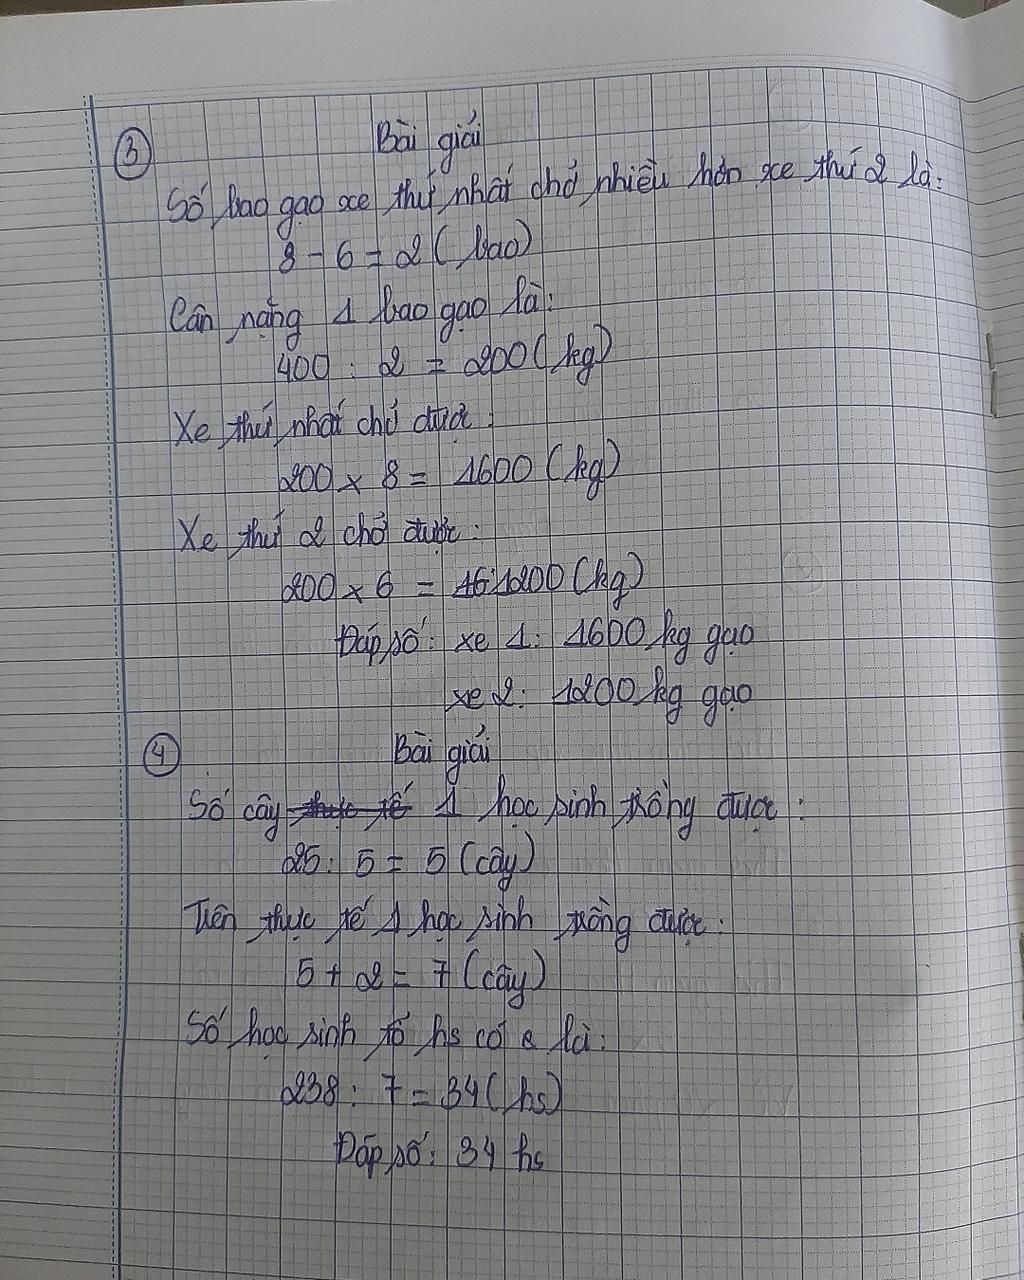 3 Bài giải
Số bao gạo xe thứ nhất chở nhiều hơn xe thứ 2 là:
8 - 6 = 2 ( bao)
Cân nặng 1 bao gạo là:
400 : 2 = 200 (kg)
Xe thứ nhất chở được :
200 x 8 = 1600 (kg)
Xe thứ 2 chở được :
200 x 6 = 1200 (kg)
Đáp số : xe 1: 1600 kg gạo
xe 2: 1200 kg gạo
4 Bài giải
Số cây thực tế 1 học sinh trồng được :
25 : 5 = 5 (cây)
Trên thực tế 1 học sinh trồng được :
5 + 2 = 7 (cây)
Số học sinh tổ hs có là:
238 : 7 = 34 ( hs)
Đáp số : 34 hs